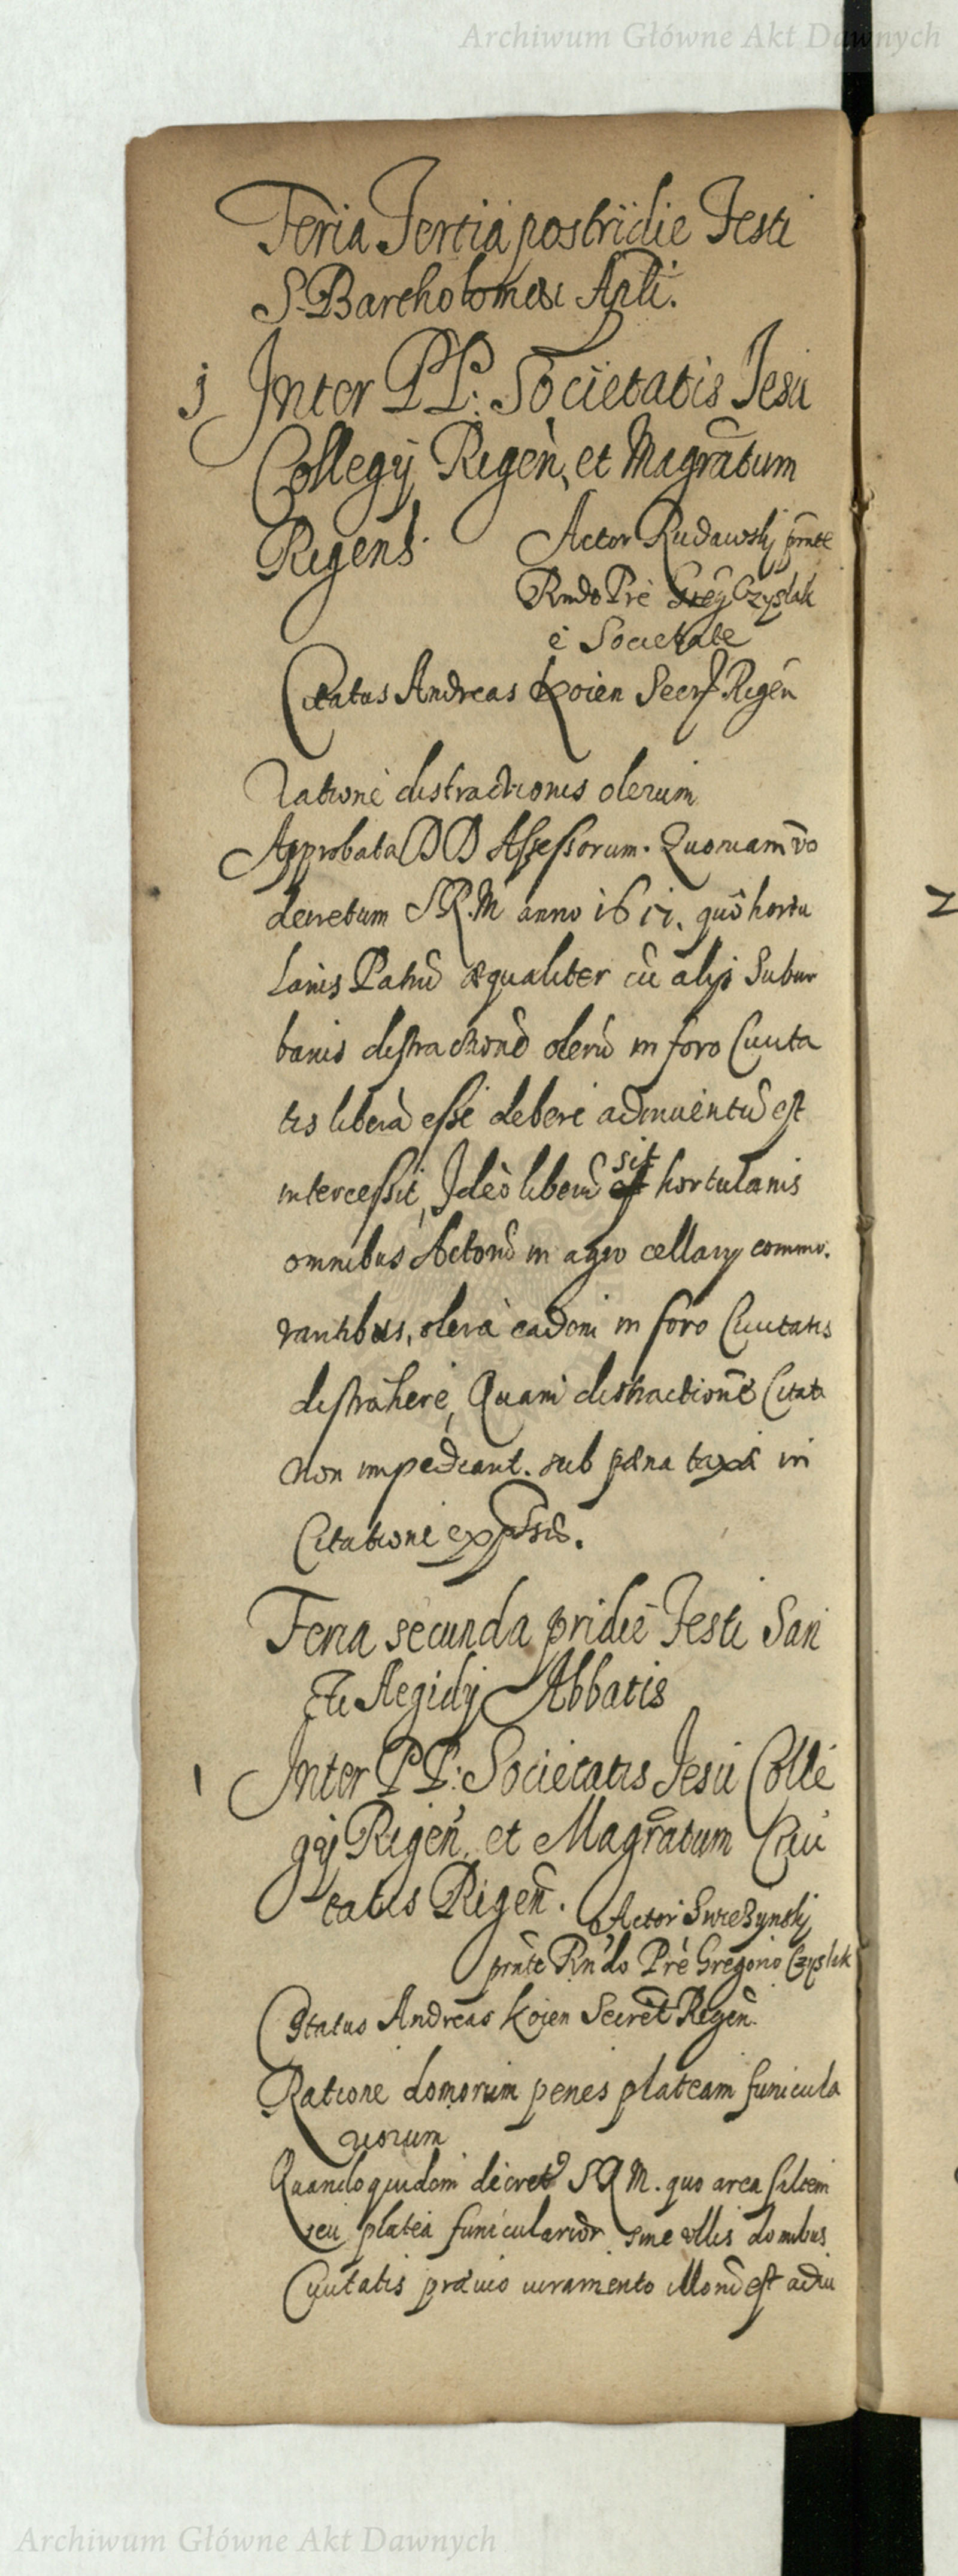 Archiwum Główne Akt Dawnych
Feria Tertia postridie Festi
S. Bartholomaei Apli.
j Inter PP: Societatis Jesu
Collegij Rigen, et Magratum
Rigens
Actor Rudawskj prnte
Rndo Pre Greg Czyslak
è Societate
Citatus Andreas Koien Secr Rigen
Ratione distractionis olerum
Approbata DD Assessorum. Quoniam vo
decretum SR.M anno 1617. quo hortu
lanis Patru aequaliter cu alijs Subur
banis distractione oleru in foro Ciuita
tis libera esse debere adinuentu est
intercessit, Ideo liberu sit hortulanis
omnibus Actoru in agro cellary commo.
rantibus, olera eadem in foro Ciuitatis
distrahere, Quam distractione Citati
non impediant. sub paena taxa in
Citatione expssis.
Feria secunda pridie Festi San
cti Aegidij Abbatis
1 Inter PP: Societatis Jesu Colle
gij Rigen, et Magratum Ciui
tatis Rigen.
Actor Swiezynskj
prnte Rndo Pre Gregorio Czyslak
Citatus Andreas Koien Secret Rigen.
Ratione domorum penes plateam funicula
riorum
Quandoquidem decret SRM. quo area saltem
seu platea funicularior sine ullis domibus
Ciuitatis praeuio iuramento illoru est adiu
Archiwum Główne Akt Dawnych